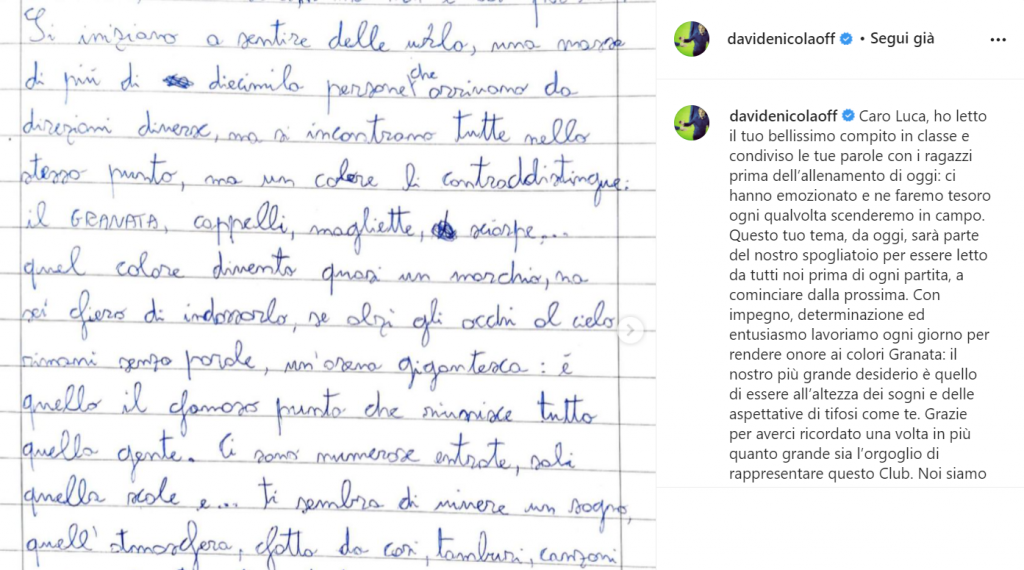 Si iniziano a sentire delle urla, una massa
di più di diecimila persone che arrivano da
direzioni diverse, ma si incontrano tutte nello
stesso punto, ma un colore li contraddistingue:
il GRANATA, cappelli, magliette, sciarpe...
quel colore diventa quasi un marchio, ma
sei fiero di indossarlo, se alzi gli occhi al cielo
rimani senza parole, un'arena gigantesca: é
quello il famoso punto che riunisce tutta
quella gente. Ci sono numerose entrate, sali
quelle scale e... ti sembra di vivere un sogno,
quell'atmosfera, fatta da cori, tamburi, canzoni
davidenicolaoff • Segui già
davidenicolaoff Caro Luca, ho letto
il tuo bellissimo compito in classe e
condiviso le tue parole con i ragazzi
prima dell'allenamento di oggi: ci
hanno emozionato e ne faremo tesoro
ogni qualvolta scenderemo in campo.
Questo tuo tema, da oggi, sarà parte
del nostro spogliatoio per essere letto
da tutti noi prima di ogni partita, a
cominciare dalla prossima. Con
impegno, determinazione ed
entusiasmo lavoriamo ogni giorno per
rendere onore ai colori Granata: il
nostro più grande desiderio è quello
di essere all'altezza dei sogni e delle
aspettative di tifosi come te. Grazie
per averci ricordato una volta in più
quanto grande sia l'orgoglio di
rappresentare questo Club. Noi siamo